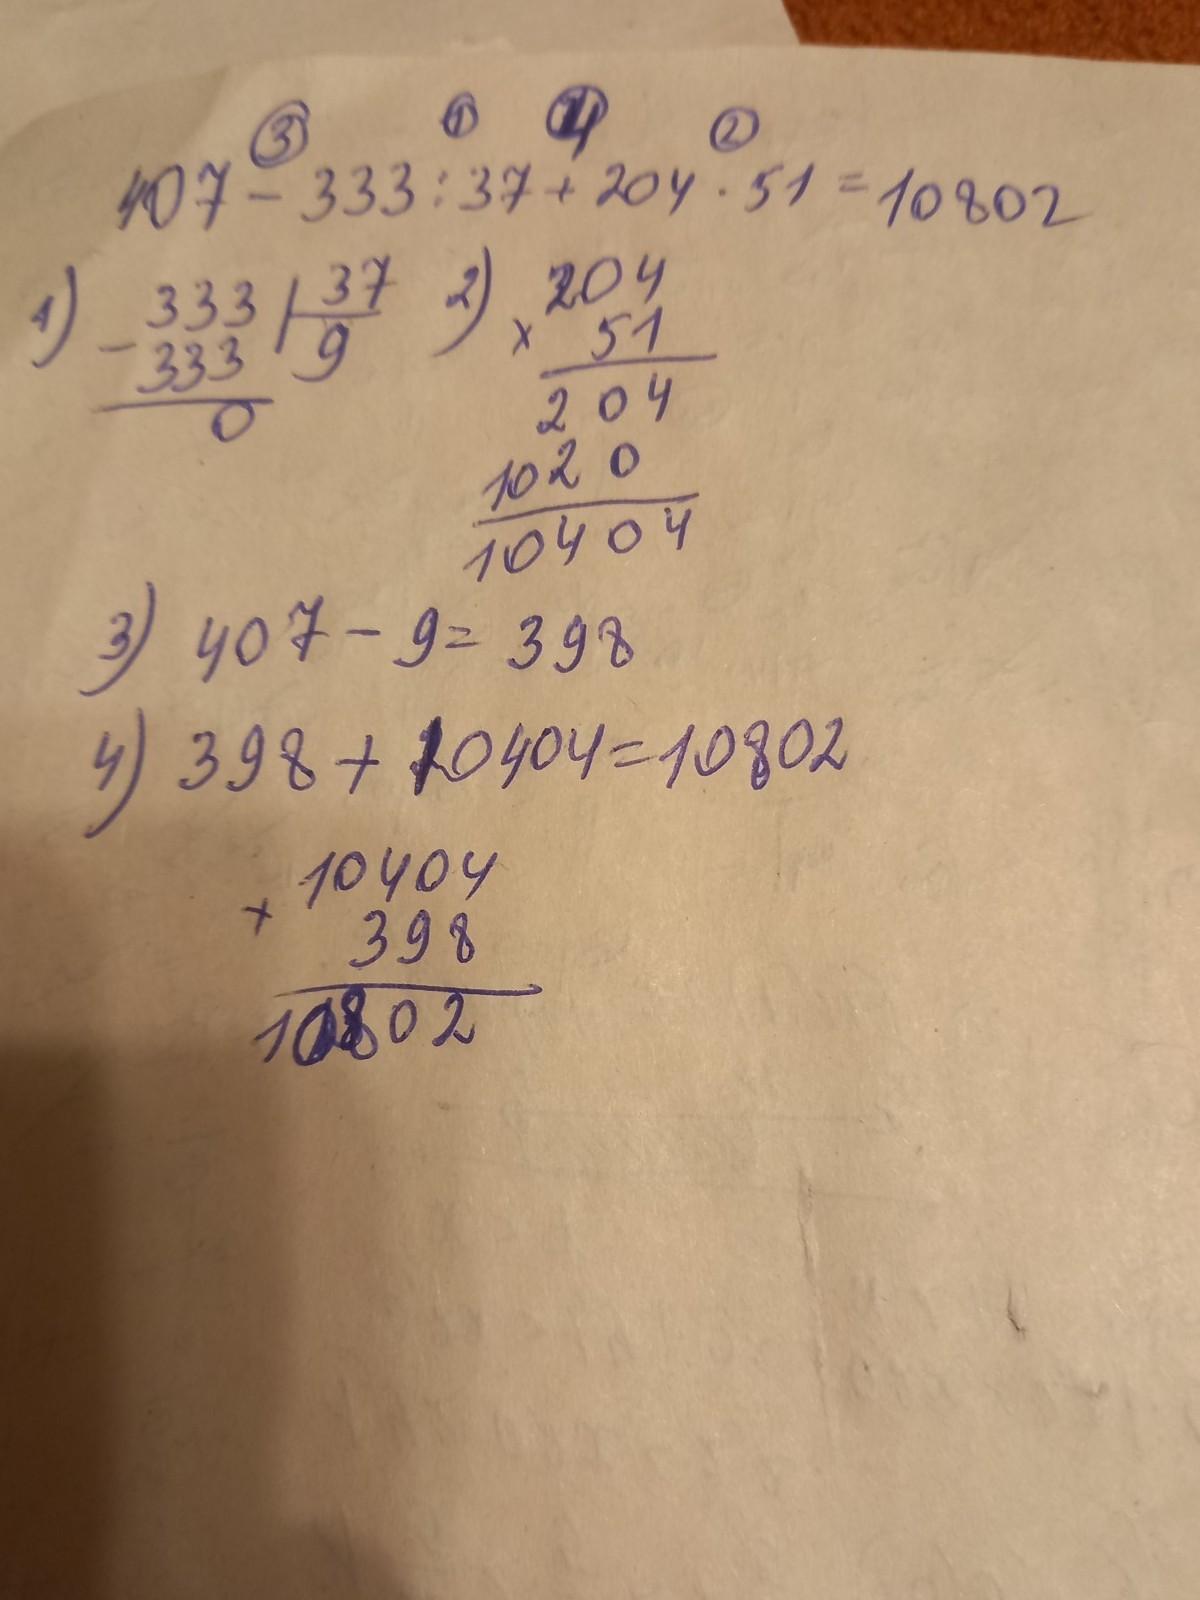 ③ ① ④ ②
407 - 333 : 37 + 204 · 51 = 10802
1) - 333 | 37 2) 204
333 9 × 51
0 204
1020
10404
3) 407 - 9 = 398
4) 398 + 10404 = 10802
10404
+ 398
10802